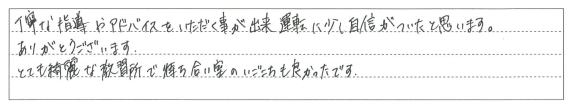 丁寧な指導やアドバイスをいただく事が出来運転に少し自信がついたと思います。
ありがとうございます。
とても綺麗な教習所で待ち合い室のいごこちも良かったです。